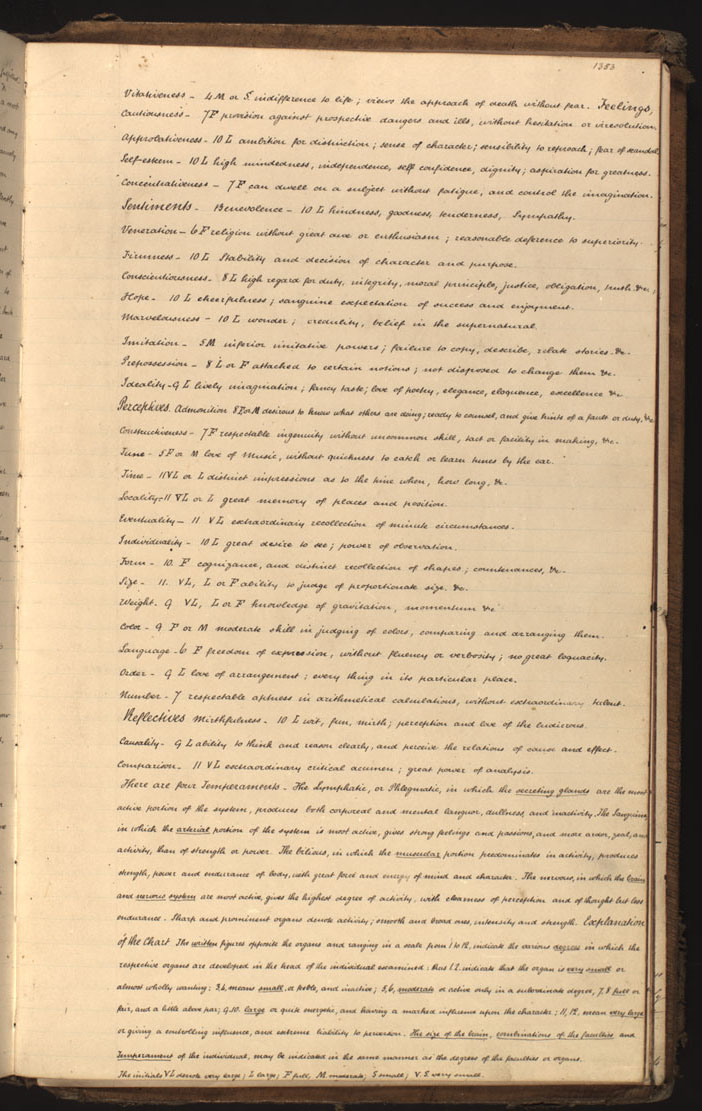 1353
Vitativeness - 4 M or S. indifference to life; views the approach of death without fear. Feelings,
Cautiousness - 7 F provision against prospective dangers and ills, without hesitation or irresolution,
Approbativeness - 10 L ambition for distinction; sense of character; sensibility to reproach; fear of scandal
Self-esteem - 10 L high mindedness, independence, self confidence, dignity; aspiration for greatness.
Concentrativeness - 7 F can dwell on a subject without fatigue, and control the imagination.
Sentiments - Benevolence - 10 L kindness, goodness, tenderness, Sympathy.
Veneration - 6 F religion without great awe or enthusiasm; reasonable deference to superiority.
Firmness - 10 L Stability and decision of character and purpose.
Conscientiousness. 8 L high regard for duty, integrity, moral principle, justice, obligation, truth &c,
Hope - 10 L cheerfulness; sanguine expectation of success and enjoyment.
Marvelousness - 10 L wonder; credulity, belief in the supernatural.
Imitation - 5 M inferior imitative powers; failure to copy, describe, relate stories. &c.
Prepossession - 8 L or F attached to certain notions; not disposed to change them &c.
Ideality - 9 L lively imagination; fancy taste; love of poetry, elegance, eloquence, excellence &c
Perceptives. Admonition 8 F or M desirous to know what others are doing; ready to counsel, and give hints of a fault or duty, &c
Constructiveness - 7 F respectable ingenuity without uncommon skill, tact or facility in making, &c.
Tune - 5 F or M love of Music, without quickness to catch or learn tunes by the ear.
Time - 11 VL or L distinct impressions as to the time when, how long, &c.
Locality - 11 VL or L great memory of places and position.
Eventuality - 11 VL extraordinary recollection of minute circumstances.
Individuality - 10 L great desire to see; power of observation.
Form - 10. F cognizance, and distinct recollection of shapes; countenances, &c.
Size - 11. VL, L or F ability to judge of proportionate size. &c.
Weight. 9 VL, L or F knowledge of gravitation, momentum &c
Color - 9 F or M moderate skill in judging of colors, comparing and arranging them.
Language - 6 F freedom of expression, without fluency or verbosity; no great loquacity.
Order - 9 L love of arrangement; every thing in its particular place.
Number - 7 respectable aptness in arithmetical calculations, without extraordinary talent.
Reflectives Mirthfulness - 10 L wit, fun, mirth; perception and love of the ludicrous.
Causality - 9 L ability to think and reason clearly, and perceive the relations of cause and effect.
Comparison - 11 VL extraordinary critical acumen; great power of analysis.
There are four Temperaments - The Lymphatic, or Phlegmatic, in which the secreting glands are the most
active portion of the system, produces both corporeal and mental languor, dullness, and inactivity. The Sanguine
in which the arterial portion of the system is most active, gives strong feelings and passions, and more ardor, zeal, and
activity, than of strength or power. The bilious, in which the muscular portion predominates in activity, produces
strength, power and endurance of body, with great force and energy of mind and character. The nervous, in which the brain
and nervous system are most active, gives the highest degree of activity, with clearness of perception and of thought but less
endurance. Sharp and prominent organs denote activity; smooth and broad ones, intensity and strength. Explanation
of the Chart The written figures opposite the organs and ranging in a scale from 1 to 12, indicate the various degrees in which the
respective organs are developed in the head of the individual examined: thus 1.2. indicate that the organ is very small or
almost wholly wanting: 3.4, means small, or feeble, and inactive; 5, 6, moderate or active only in a subordinate degree, 7, 8 full or
fair, and a little above par; 9, 10. large or quick energetic, and having a marked influence upon the character; 11, 12. mean very large
or giving a controlling influence, and extreme liability to perversion. The size of the brain, combinations of the faculties and
Temperament of the individual, may be indicated in the same manner as the degrees of the faculties or organs.
The initials VL denote very large; L large; F full, M. moderate; S small; V. S very small.